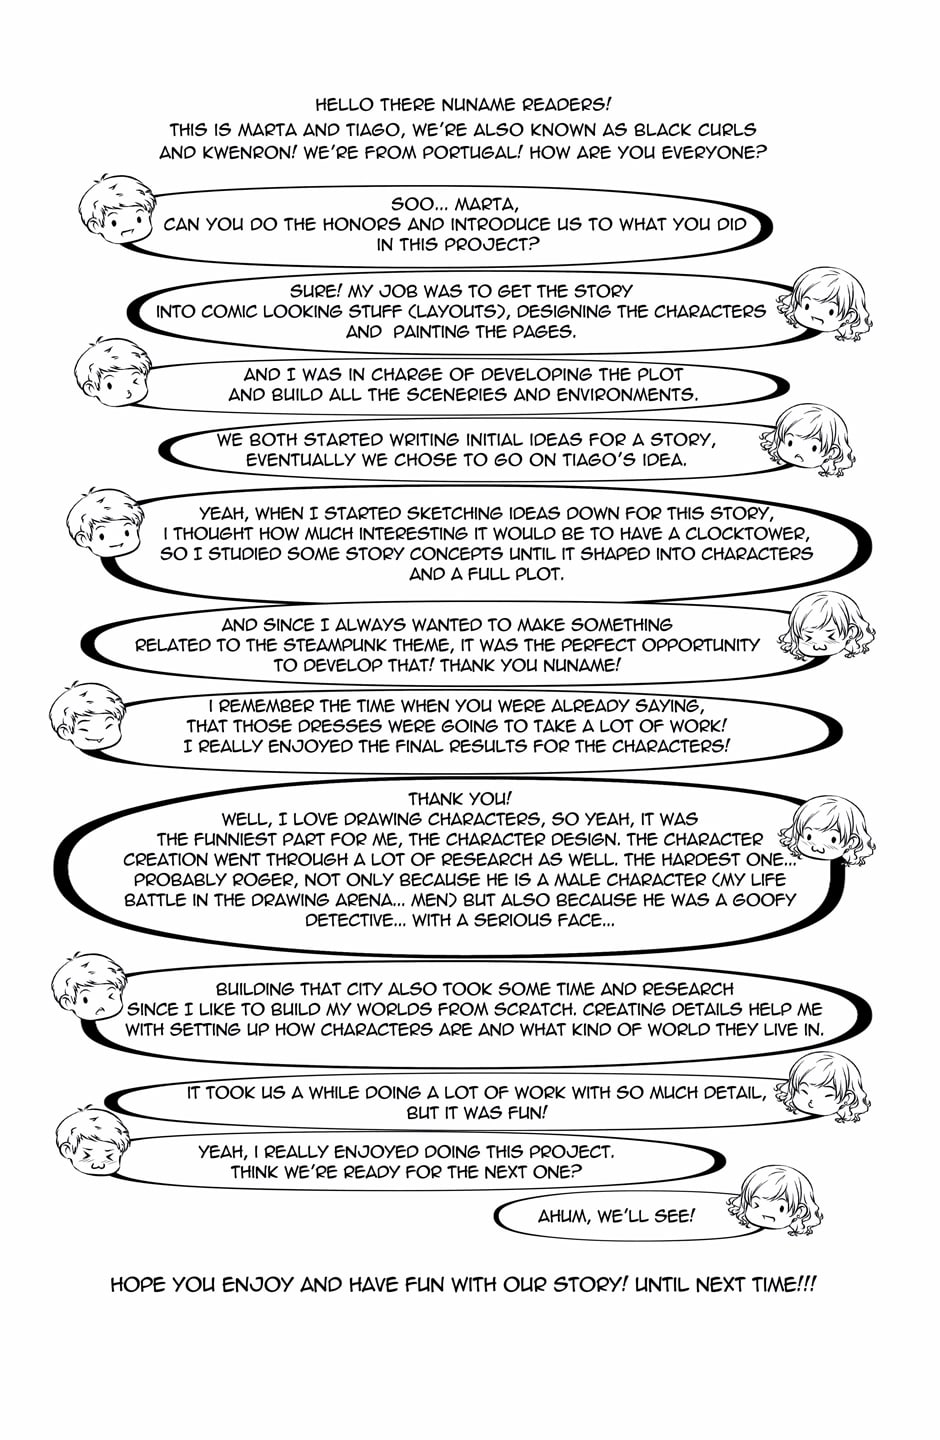 HELLO THERE NUNAME READERS!
THIS IS MARTA AND TIAGO, WE'RE ALSO KNOWN AS BLACK CURLS
AND KWENRON! WE'RE FROM PORTUGAL! HOW ARE YOU EVERYONE?
SOO... MARTA,
CAN YOU DO THE HONORS AND INTRODUCE US TO WHAT YOU DID
IN THIS PROJECT?
SURE! MY JOB WAS TO GET THE STORY
INTO COMIC LOOKING STUFF (LAYOUTS), DESIGNING THE CHARACTERS
AND PAINTING THE PAGES.
AND I WAS IN CHARGE OF DEVELOPING THE PLOT
AND BUILD ALL THE SCENERIES AND ENVIRONMENTS.
WE BOTH STARTED WRITING INITIAL IDEAS FOR A STORY,
EVENTUALLY WE CHOSE TO GO ON TIAGO'S IDEA.
YEAH, WHEN I STARTED SKETCHING IDEAS DOWN FOR THIS STORY,
I THOUGHT HOW MUCH INTERESTING IT WOULD BE TO HAVE A CLOCKTOWER,
SO I STUDIED SOME STORY CONCEPTS UNTIL IT SHAPED INTO CHARACTERS
AND A FULL PLOT.
AND SINCE I ALWAYS WANTED TO MAKE SOMETHING
RELATED TO THE STEAMPUNK THEME, IT WAS THE PERFECT OPPORTUNITY
TO DEVELOP THAT! THANK YOU NUNAME!
I REMEMBER THE TIME WHEN YOU WERE ALREADY SAYING,
THAT THOSE DRESSES WERE GOING TO TAKE A LOT OF WORK!
I REALLY ENJOYED THE FINAL RESULTS FOR THE CHARACTERS!
THANK YOU!
WELL, I LOVE DRAWING CHARACTERS, SO YEAH, IT WAS
THE FUNNIEST PART FOR ME, THE CHARACTER DESIGN. THE CHARACTER
CREATION WENT THROUGH A LOT OF RESEARCH AS WELL. THE HARDEST ONE...
PROBABLY ROGER, NOT ONLY BECAUSE HE IS A MALE CHARACTER (MY LIFE
BATTLE IN THE DRAWING ARENA... MEN) BUT ALSO BECAUSE HE WAS A GOOFY
DETECTIVE... WITH A SERIOUS FACE...
BUILDING THAT CITY ALSO TOOK SOME TIME AND RESEARCH
SINCE I LIKE TO BUILD MY WORLDS FROM SCRATCH. CREATING DETAILS HELP ME
WITH SETTING UP HOW CHARACTERS ARE AND WHAT KIND OF WORLD THEY LIVE IN.
IT TOOK US A WHILE DOING A LOT OF WORK WITH SO MUCH DETAIL,
BUT IT WAS FUN!
YEAH, I REALLY ENJOYED DOING THIS PROJECT.
THINK WE'RE READY FOR THE NEXT ONE?
AHUM, WE'LL SEE!
HOPE YOU ENJOY AND HAVE FUN WITH OUR STORY! UNTIL NEXT TIME!!!